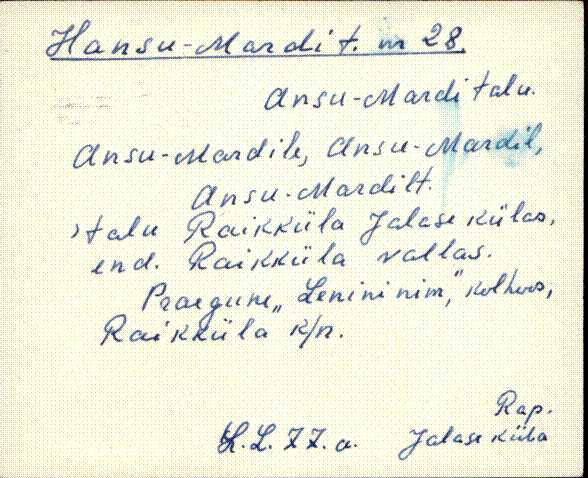 Hansu-Mardi t. nr 28.
Ansu-Mardi talu.
Ansu-Mardile, Ansu-Mardil,
Ansu-Mardilt.
talu Raikküla Jalase külas,
end. Raikküla vallas.
Praegune „Lenini nim." kolhoos,
Raikküla k/n.
Rap.
L. 77. a. Jalase küla